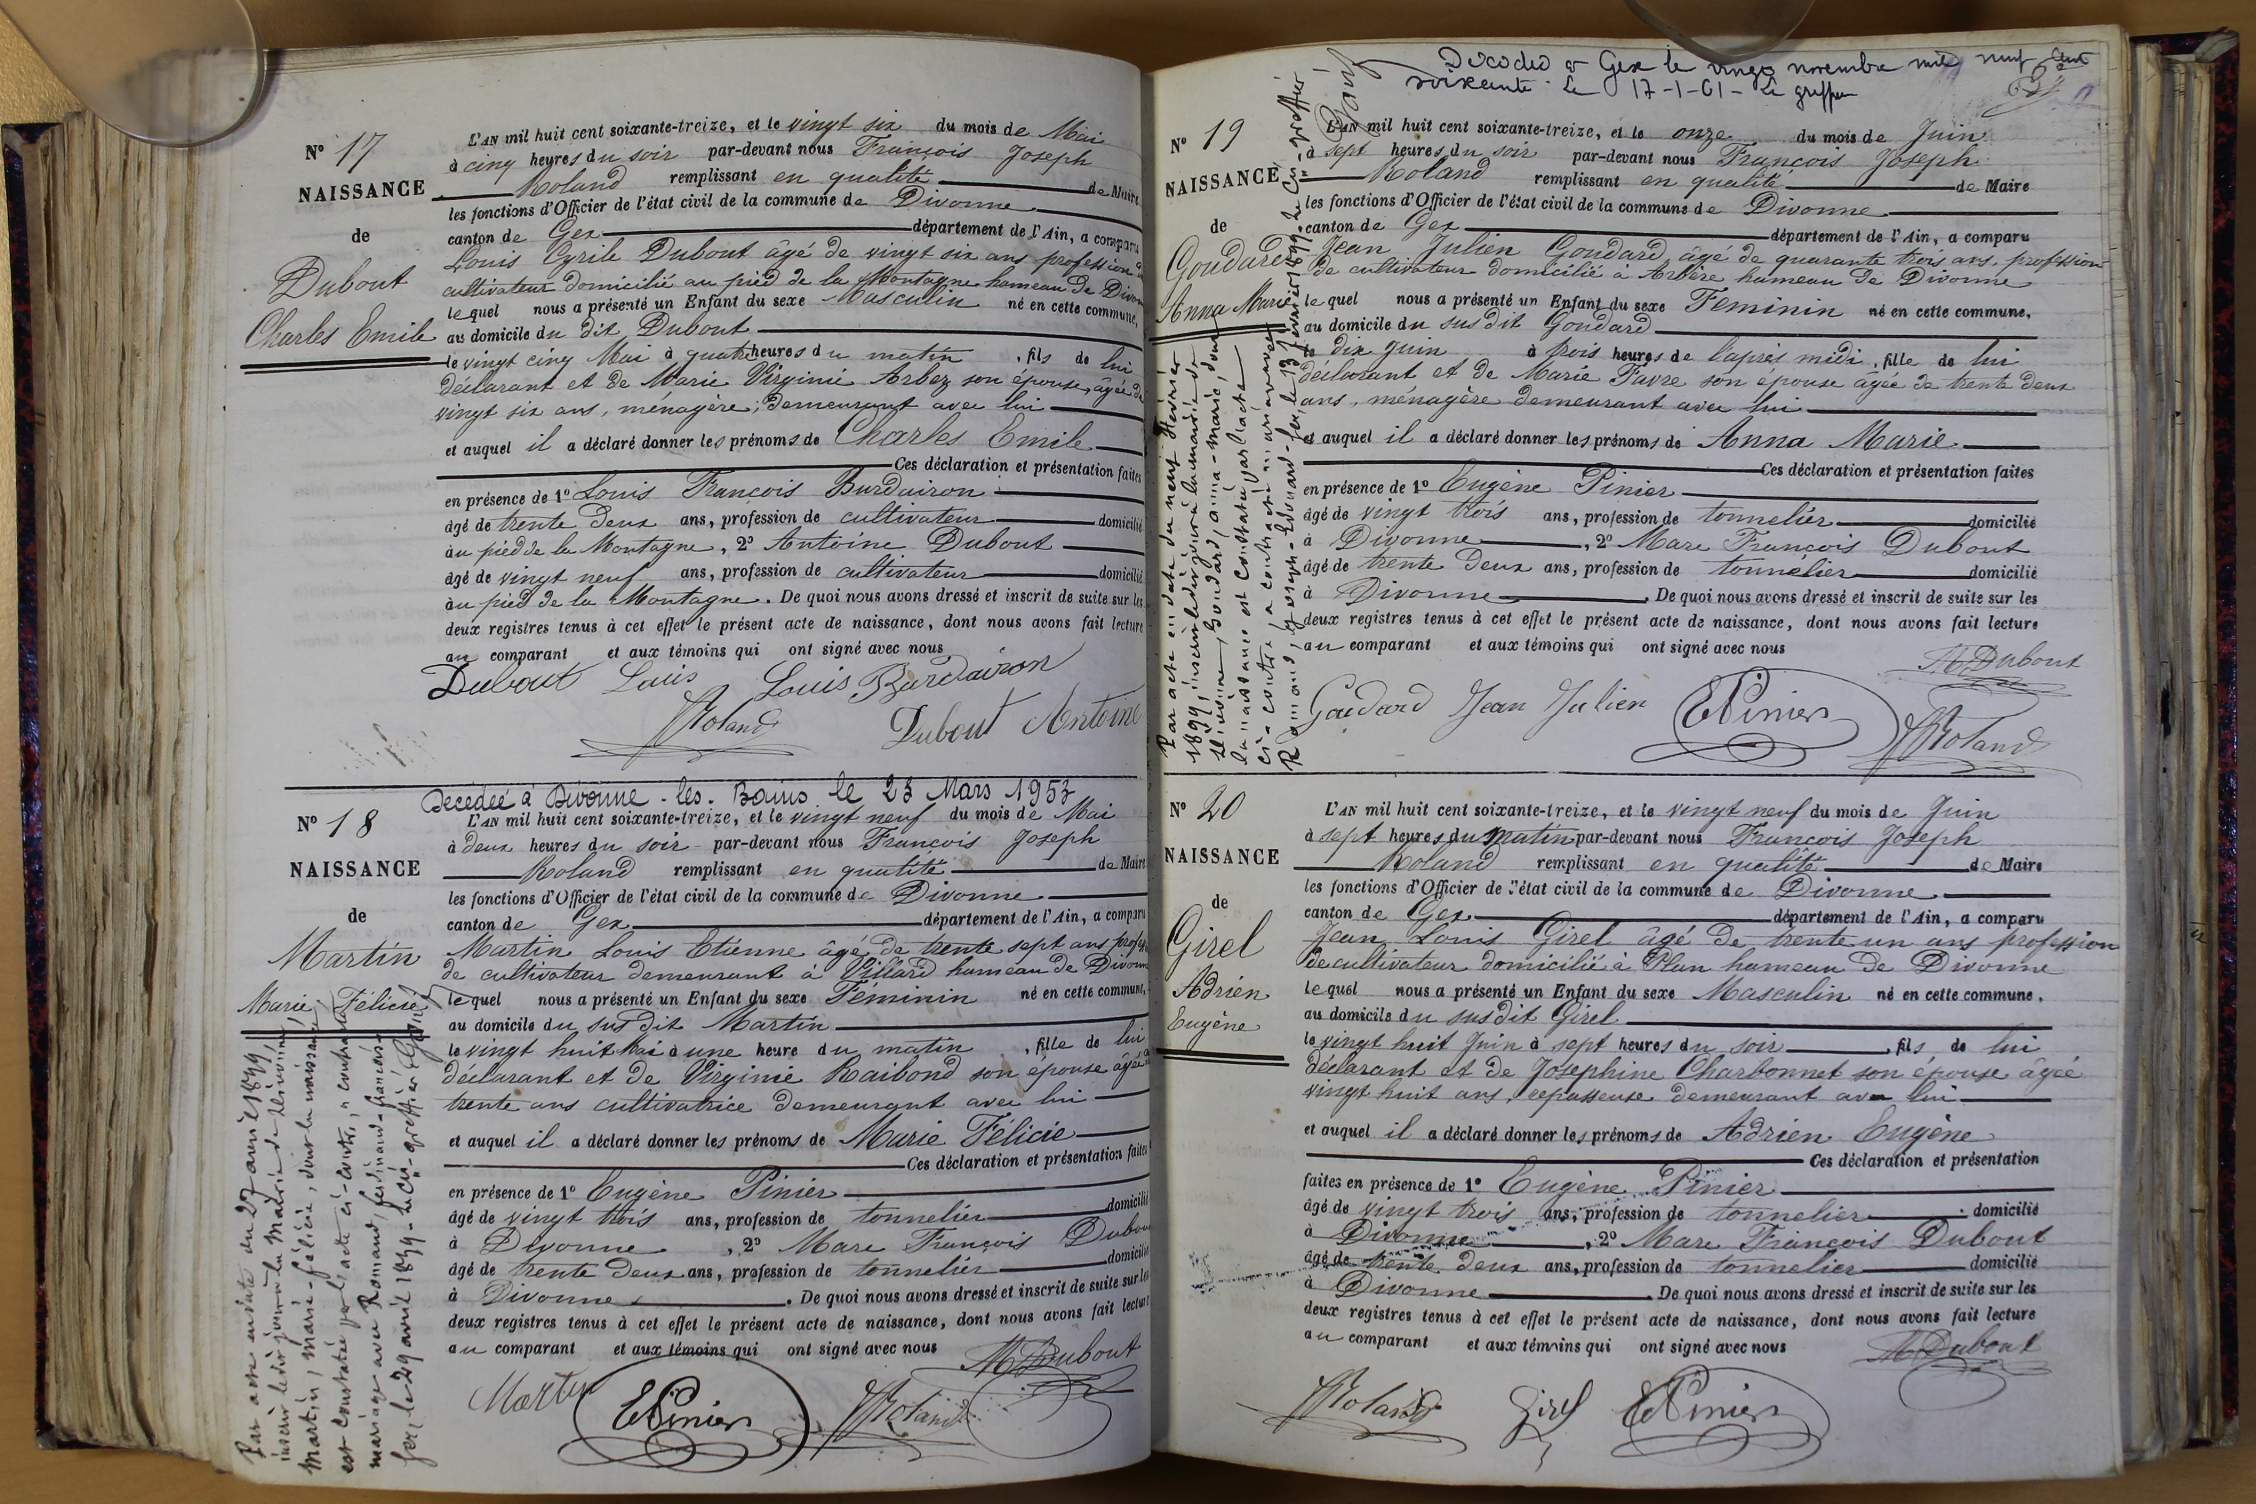 N° 17
NAISSANCE
de
Dubout
Charles Emile
L'AN mil huit cent soixante-treize, et le vingt six du mois de Mai
à cinq heures du soir par-devant nous François Joseph
Roland remplissant en qualité de Maire
les fonctions d'Officier de l'état civil de la commune de Divonne
canton de Gex département de l'Ain, a comparu
Louis Cyrile Dubout âgé de vingt six ans profession de
cultivateur domicilié au pied de la Montagne hameau de Divonne
lequel nous a présenté un Enfant du sexe Masculin né en cette commune,
au domicile du dit Dubout
le vingt cinq Mai à quatre heures du matin, fils de lui
déclarant et de Marie Virginie Arbez son épouse, âgée de
vingt six ans, ménagère, demeurant avec lui
et auquel il a déclaré donner les prénoms de Charles Emile
Ces déclaration et présentation faites
en présence de 1° Louis François Burdairon
âgé de trente deux ans, profession de cultivateur domicilié
au pied de la Montagne, 2° Antoine Dubout
âgé de vingt neuf ans, profession de cultivateur domicilié
au pied de la Montagne. De quoi nous avons dressé et inscrit de suite sur les
deux registres tenus à cet effet le présent acte de naissance, dont nous avons fait lecture
au comparant et aux témoins qui ont signé avec nous
Dubout Louis Louis Burdairon
Roland Dubout Antoine
Décédée à Divonne-les-Bains le 23 Mars 1953
N° 18
NAISSANCE
de
Martin
Marie Félicie
L'AN mil huit cent soixante-treize, et le vingt neuf du mois de Mai
à deux heures du soir par-devant nous François Joseph
Roland remplissant en qualité de Maire
les fonctions d'Officier de l'état civil de la commune de Divonne
canton de Gex département de l'Ain, a comparu
Martin Louis Etienne âgé de trente sept ans profession
de cultivateur demeurant à Villard hameau de Divonne
lequel nous a présenté un Enfant du sexe Féminin né en cette commune,
au domicile du sus dit Martin
le vingt huit Mai à une heure du matin, fille de lui
déclarant et de Virginie Raibond son épouse âgée de
trente ans cultivatrice demeurant avec lui
et auquel il a déclaré donner les prénoms de Marie Félicie
Ces déclaration et présentation faites
en présence de 1° Eugène Pinier
âgé de vingt trois ans, profession de tonnelier domicilié
à Divonne, 2° Marc François Dubout
âgé de trente deux ans, profession de tonnelier domicilié
à Divonne. De quoi nous avons dressé et inscrit de suite sur les
deux registres tenus à cet effet le présent acte de naissance, dont nous avons fait lecture
au comparant et aux témoins qui ont signé avec nous
M Dubout
Martin E Pinier Roland
Par acte en date du 27 avril 1899,
inscrit le dit jour à la Mairie de Divonne,
Martin, marie-félicie, dont la naissance
est constatée par l'acte ci-contre, a contracté
mariage avec Romand, ferdinand-françois.
Gex, le 29 avril 1899 - Le Cis-greffier
Décédée à Gex le vingt novembre mil neuf cent
soixante. Le 17-1-61 - Le greffier
N° 19
NAISSANCE
de
Goudard
Anna Marie
L'AN mil huit cent soixante-treize, et le onze du mois de Juin
à sept heures du soir par-devant nous François Joseph
Roland remplissant en qualité de Maire
les fonctions d'Officier de l'état civil de la commune de Divonne
canton de Gex département de l'Ain, a comparu
Jean Julien Goudard âgé de quarante trois ans, profession
de cultivateur domicilié à Arbère hameau de Divonne
lequel nous a présenté un Enfant du sexe Feminin né en cette commune,
au domicile du sus dit Goudard
le dix Juin à trois heures de l'après midi, fille de lui
déclarant et de Marie Favre son épouse âgée de trente deux
ans, ménagère demeurant avec lui
et auquel il a déclaré donner les prénoms de Anna Marie
Ces déclaration et présentation faites
en présence de 1° Eugène Pinier
âgé de vingt trois ans, profession de tonnelier domicilié
à Divonne, 2° Marc François Dubout
âgé de trente deux ans, profession de tonnelier domicilié
à Divonne. De quoi nous avons dressé et inscrit de suite sur les
deux registres tenus à cet effet le présent acte de naissance, dont nous avons fait lecture
au comparant et aux témoins qui ont signé avec nous
M Dubout
Goudard Jean Julien E Pinier Roland
Par acte en date du neuf février
1899, inscrit le dit jour à la mairie de
Divonne, Goudard, anna-marie, dont
la naissance est constatée par l'acte
ci-contre, a contracté mariage avec
Romand, joseph-Edouard. Gex, le 13 février 1899. Le Cis-greffier
N° 20
NAISSANCE
de
Girel
Adrien
Eugène
L'AN mil huit cent soixante-treize, et le vingt neuf du mois de Juin
à sept heures du matin par-devant nous François Joseph
Roland remplissant en qualité de Maire
les fonctions d'Officier de l'état civil de la commune de Divonne
canton de Gex département de l'Ain, a comparu
Jean Louis Girel âgé de trente un ans profession
de cultivateur domicilié à Plan hameau de Divonne
lequel nous a présenté un Enfant du sexe Masculin né en cette commune,
au domicile du susdit Girel
le vingt huit Juin à sept heures du soir, fils de lui
déclarant et de Josephine Charbonnet son épouse âgée
vingt huit ans, repasseuse demeurant avec lui
et auquel il a déclaré donner les prénoms de Adrien Eugène
Ces déclaration et présentation
faites en présence de 1° Eugène Pinier
âgé de vingt trois ans, profession de tonnelier domicilié
à Divonne, 2° Marc François Dubout
âgé de trente deux ans, profession de tonnelier domicilié
à Divonne. De quoi nous avons dressé et inscrit de suite sur les
deux registres tenus à cet effet le présent acte de naissance, dont nous avons fait lecture
au comparant et aux témoins qui ont signé avec nous
M Dubout
Roland Girel E Pinier